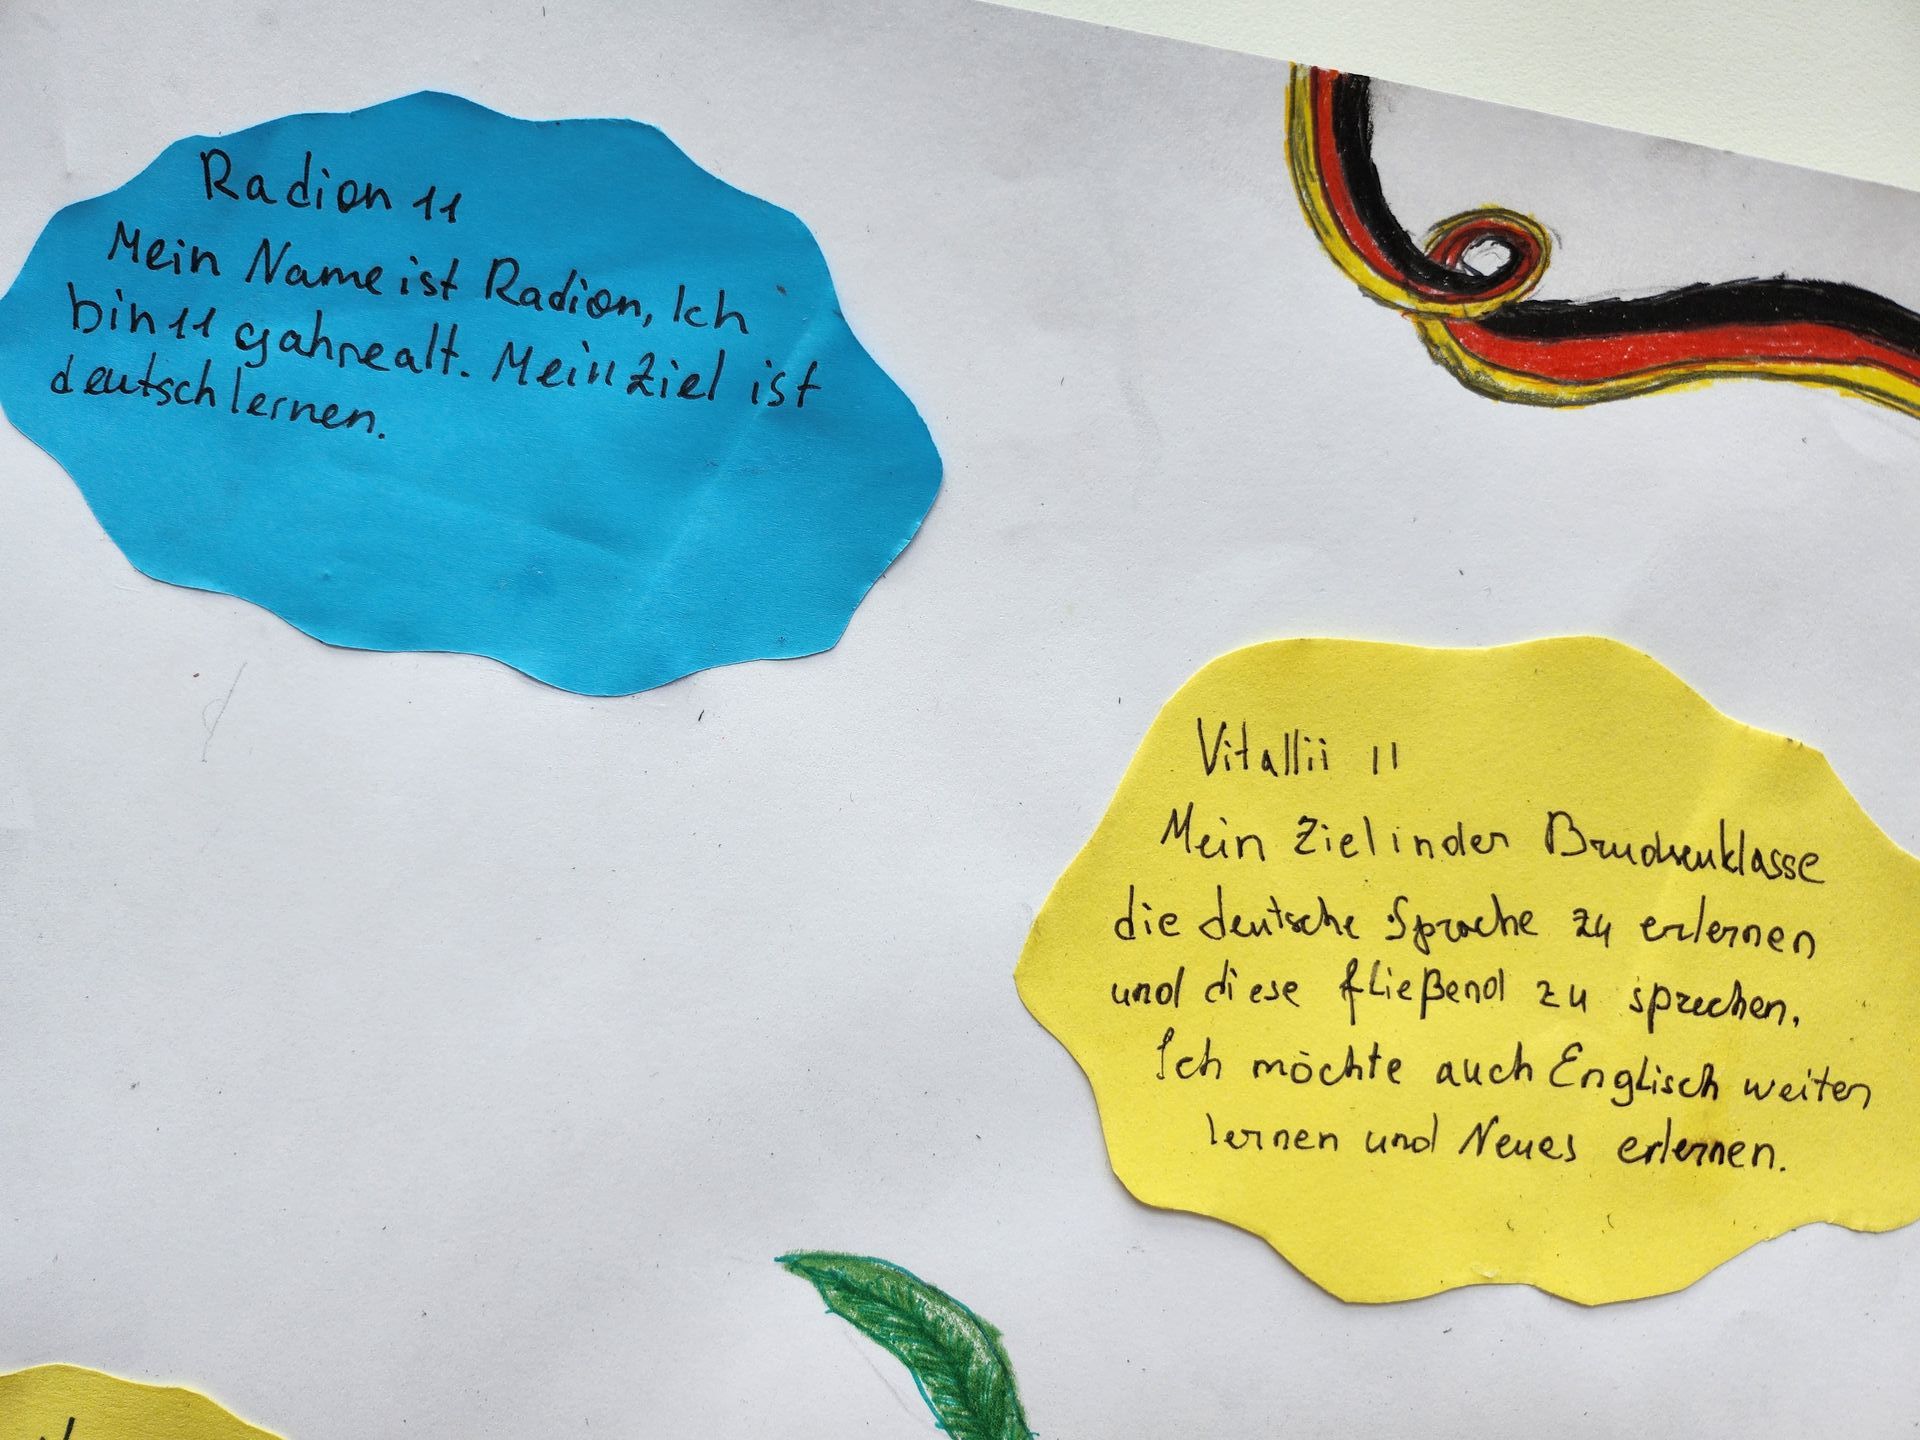 Radion 11
Mein Name ist Radion, Ich
bin 11 gahre alt. Mein Ziel ist
deutsch lernen.
Vitallii 11
Mein Ziel in der Bruckenklasse
die deutsche Sprache zu erlernen
und diese fließend zu sprechen.
Ich möchte auch Englisch weiter
lernen und Neues erlernen.